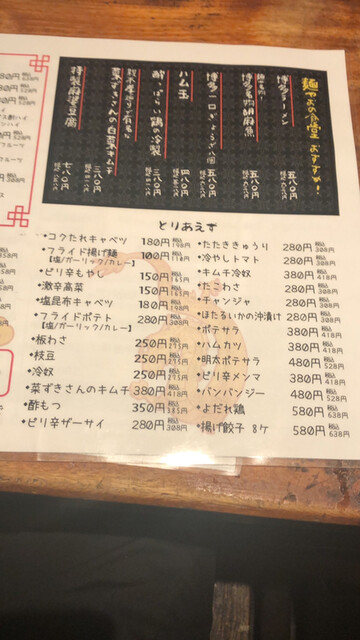 麺やおの食堂 おすすめ!
博多ラーメン 五八〇円
博多名物胡麻魚 五八〇円
博多一口ぎょうざ八個 五八〇円
ハム玉 四八〇円
酔っぱらい鶏の冷製 三八〇円
菜ずきさんの白菜キムチ 三八〇円
特製麻婆豆腐 七八〇円
とりあえず
•コクたれキャベツ 180円 税込198円
•フライド揚げ麺 100円 税込110円
【塩/ガーリック/カレー】
•ピリ辛もやし 150円 税込165円
•激辛高菜 150円 税込165円
•塩昆布キャベツ 180円 税込198円
•フライドポテト 280円 税込308円
【塩/ガーリック/カレー】
•板わさ 250円 税込275円
•枝豆 250円 税込275円
•冷奴 250円 税込275円
•菜ずきさんのキムチ 380円 税込418円
•酢もつ 350円 税込385円
•ピリ辛ザーサイ 280円 税込308円
•たたききゅうり 280円 税込308円
•冷やしトマト 280円 税込308円
•キムチ冷奴 380円 税込418円
•たこわさ 280円 税込308円
•チャンジャ 280円 税込308円
•ほたるいかの沖漬け 280円 税込308円
•ポテサラ 380円 税込418円
•ハムカツ 380円 税込418円
•明太ポテサラ 480円 税込528円
•ピリ辛メンマ 380円 税込418円
•バンバンジー 480円 税込528円
•よだれ鶏 580円 税込638円
•揚げ餃子 8ケ 580円 税込638円